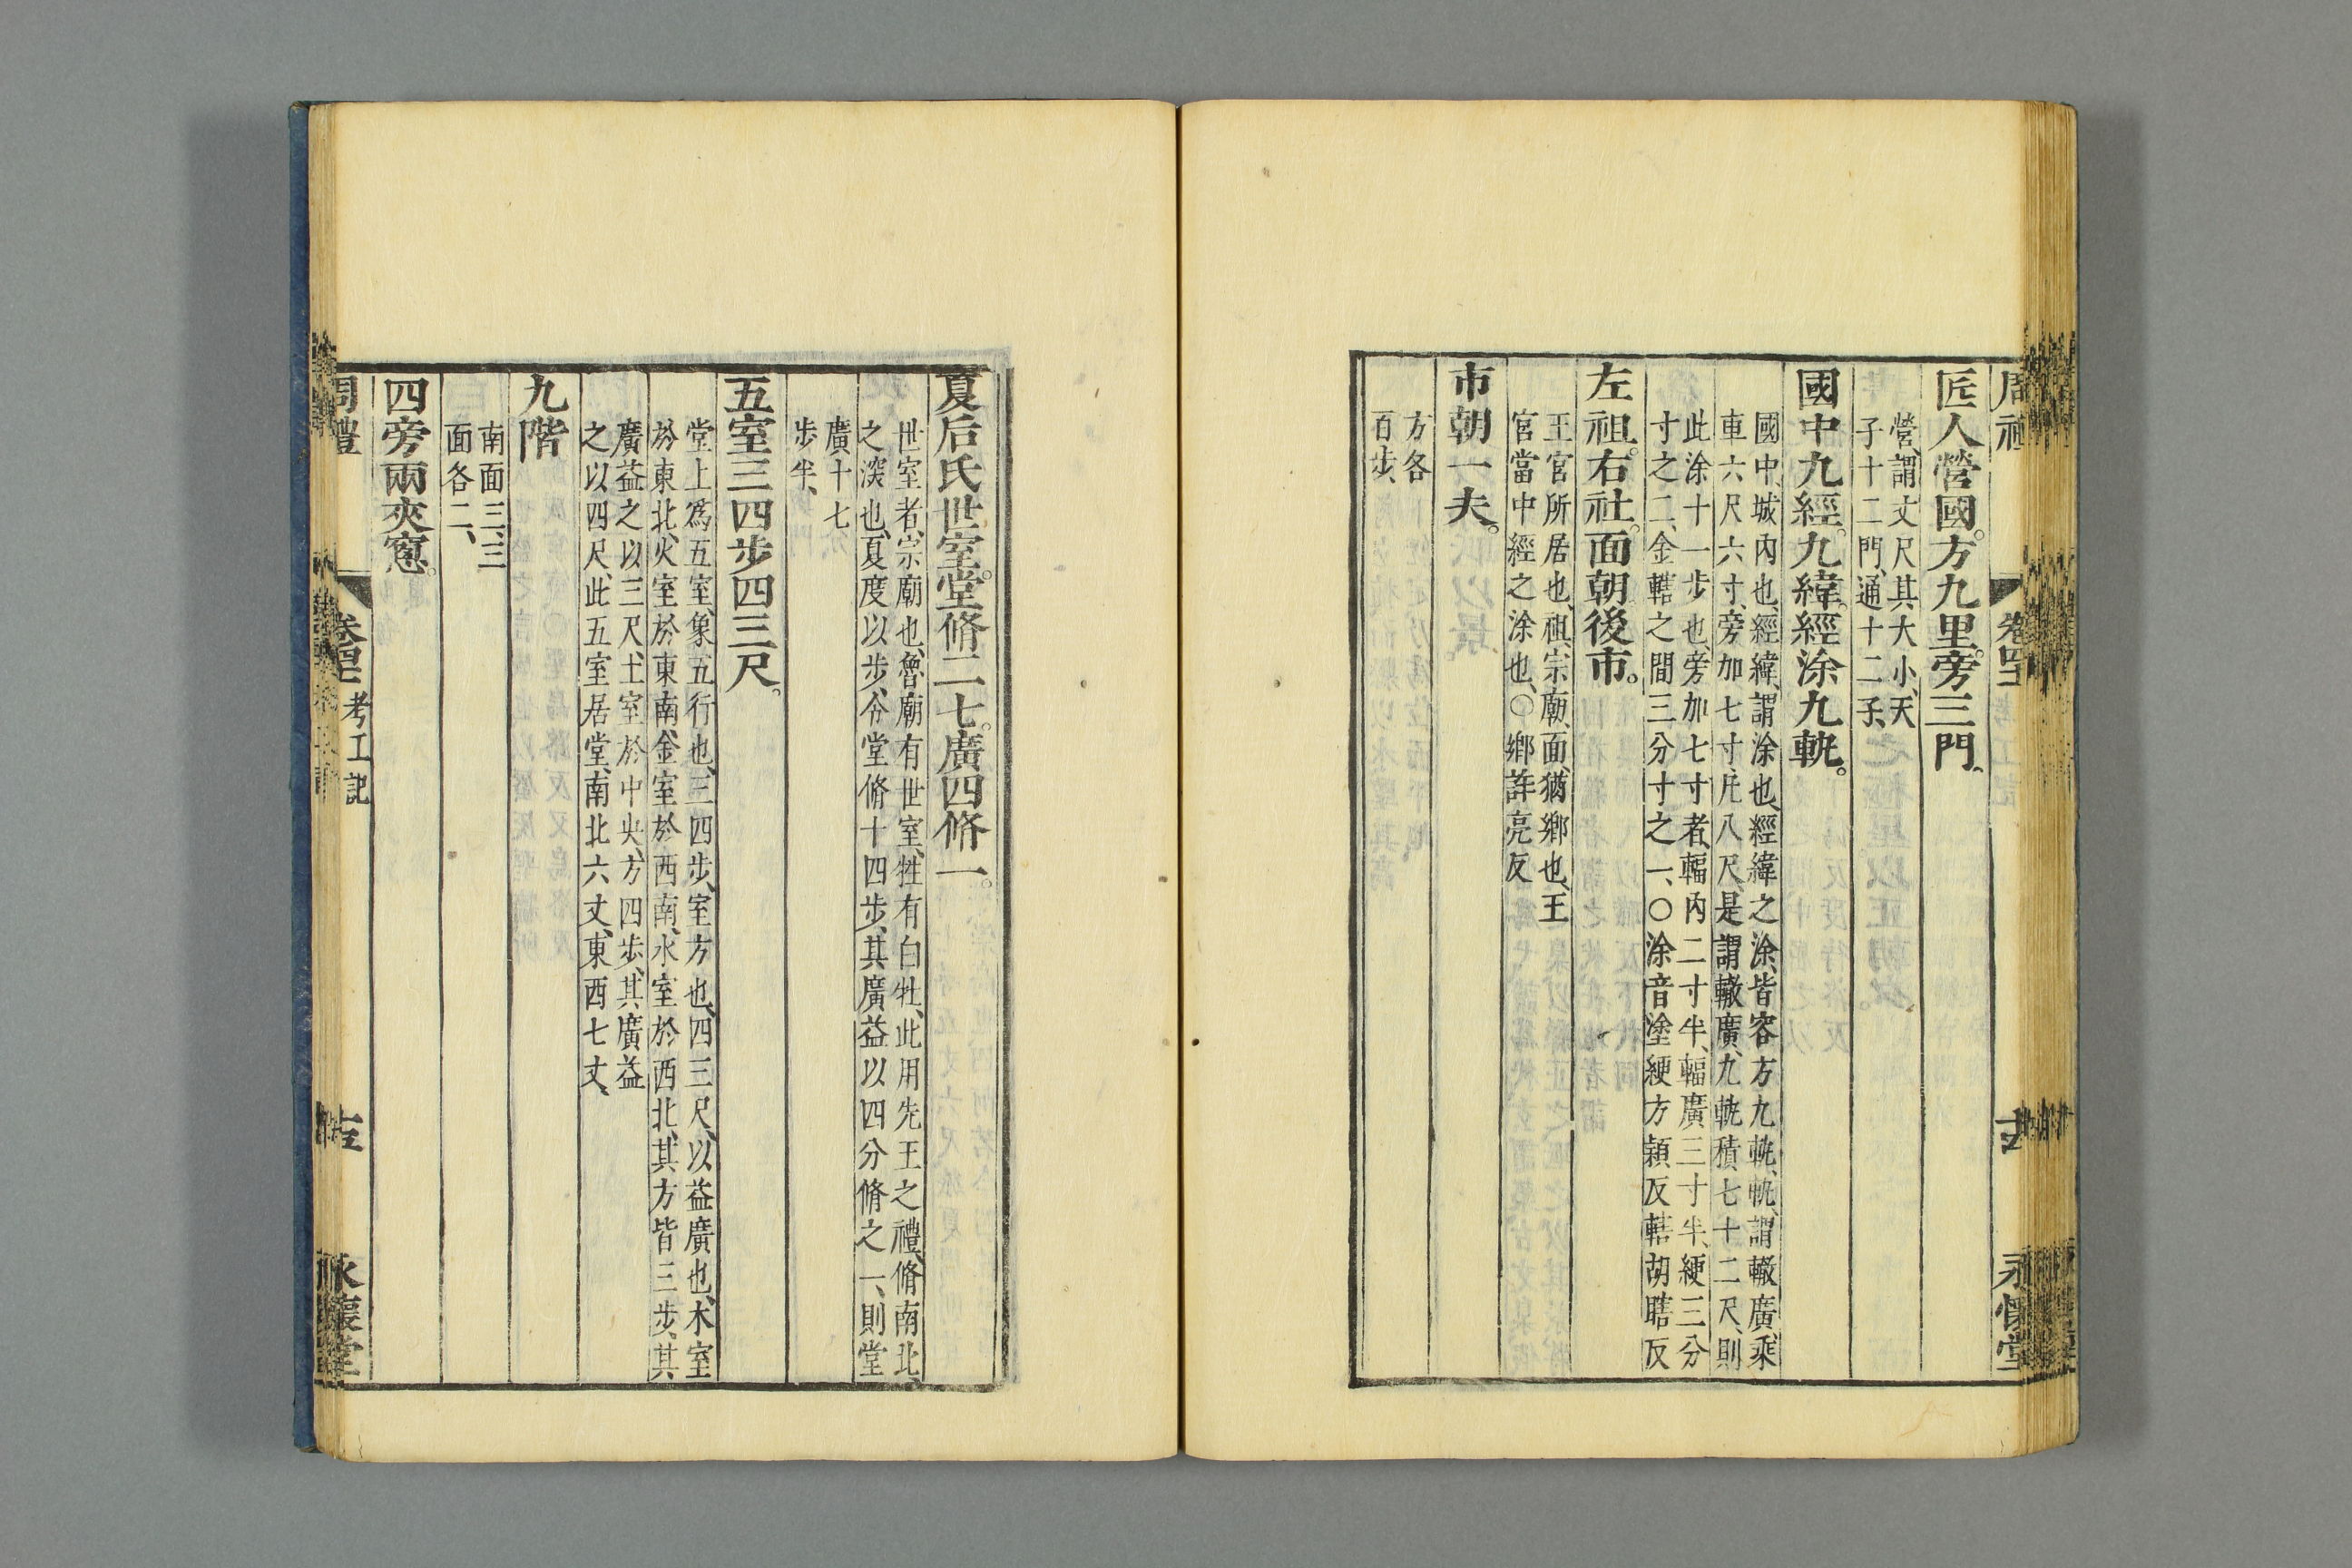 匠人營國。方九里。旁三門、
營、謂丈尺其大小、天
子十二門、通十二子、
國中九經。九緯。經涂九軌。
國中、城內也、經緯、謂涂也、經緯之涂、皆容方九軌、軌、謂轍廣、乘
車六尺六寸、旁加七寸、凡八尺、是謂轍廣、九軌積七十二尺、則
此涂十一步也、旁加七寸者、輻內二寸半、輻廣三寸半、綆三分
寸之二、金轄之間三分寸之一、〇涂音塗綆方穎反轄胡瞎反
左祖。右社。面朝後市。
王宮所居也、祖、宗廟、面、猶鄉也、王
宮當中經之涂也、〇鄉許亮反
市朝一夫。
方各
百步、
夏后氏世室。堂脩二七。廣四脩一。
世室者、宗廟也、魯廟有世室、牲有白牡、此用先王之禮、脩南北、
之深也、夏度以步、令堂脩十四步、其廣益以四分脩之一、則堂
廣十七
步半、
五室三四步四三尺。
堂上爲五室、象五行也、三四步、室方也、四三尺、以益廣也、木室
於東北、火室於東南、金室於西南、水室於西北、其方皆三步、其
廣益之以三尺、土室於中央、方四步、其廣益
之以四尺、此五室居堂、南北六丈、東西七丈、
九階
南面三、三
面各二、
四旁兩夾窻。
周禮
卷四十二
考工記
十五
永懷堂